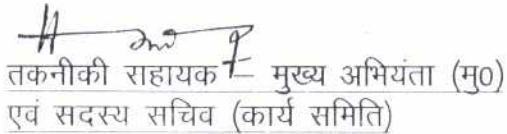 तकनीकी सहायक – मुख्य अभियंता (मु0)
एवं सदस्य सचिव (कार्य समिति)